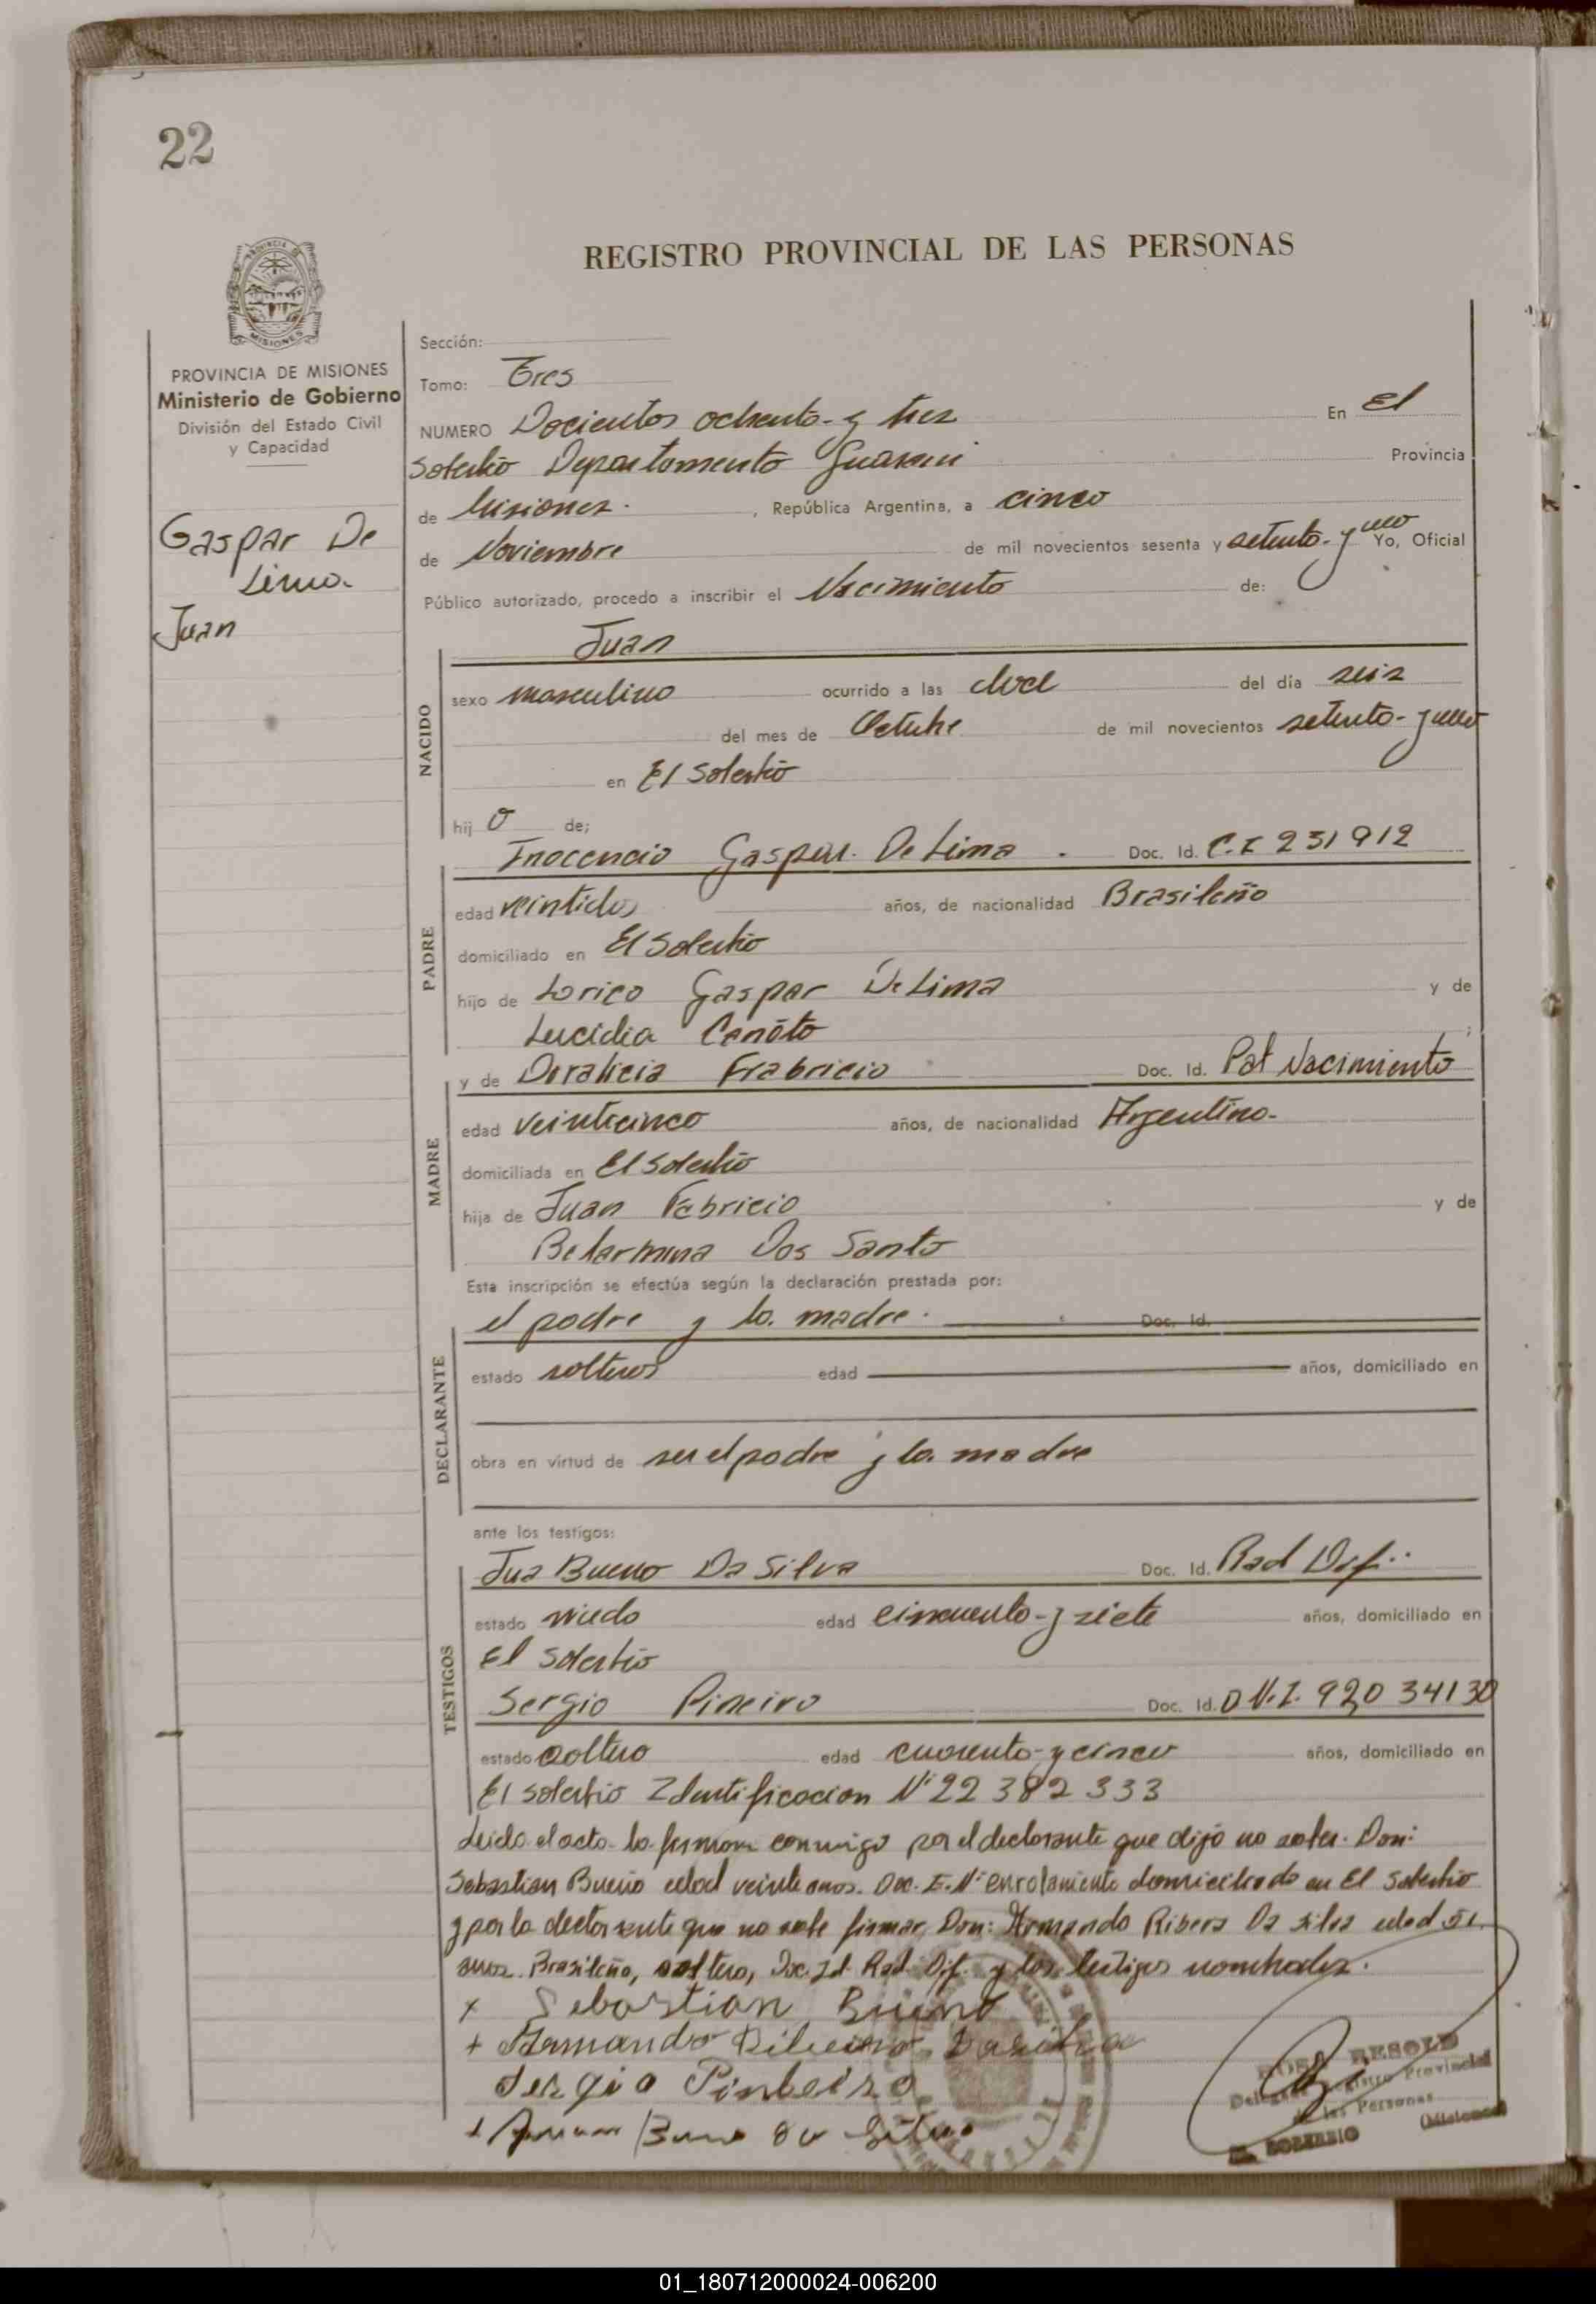 22
REGISTRO PROVINCIAL DE LAS PERSONAS
PROVINCIA DE
MISIONES
PROVINCIA DE MISIONES
Ministerio de Gobierno
División del Estado Civil
y Capacidad
Gaspar De
Lima.
Juan
Sección:
Tomo: Tres
NUMERO Docientos ochenta y tres En El
Soberbio Departamento Guarani Provincia
de Misiones. , República Argentina, a cinco
de Noviembre de mil novecientos sesenta y setenta y uno Yo, Oficial
Público autorizado, procedo a inscribir el Nacimiento de:
Juan
NACIDO
sexo masculino ocurrido a las doce del día seis
del mes de Octubre de mil novecientos setenta y uno
en El Soberbio
hij o de;
PADRE
Inocencio Gaspar. De Lima . Doc. Id. C.I 231912
edad veintidos años, de nacionalidad Brasileño
domiciliado en El Soberbio
hijo de Lorico Gaspar De Lima y de
Lucidia Canoto ;
MADRE
y de Doralicia Frabricio Doc. Id. Pat Nacimiento
edad veinticinco años, de nacionalidad Argentina
domiciliada en El Soberbio
hija de Juan Fabricio y de
Belarmina Dos Santo
Esta inscripción se efectúa según la declaración prestada por:
DECLARANTE
el padre y la madre. Doc. Id.
estado solteros edad años, domiciliado en
obra en virtud de ser el padre y la madre
ante los testigos:
TESTIGOS
Jua Bueno Da Silva Doc. Id. Rad Dif..
estado viudo edad cincuenta y siete años, domiciliado en
El Soberbio
Sergio Pineiro Doc. Id. D.N.I. 920 34130
estado soltero edad cuarenta y cinco años, domiciliado en
El Soberbio Identificacion Nº 22 382 333
Leido el acto la firman conmigo por el declarante que dijo no saber. Don:
Sebastian Bueno edad veinte anos. Doc. I. Nº enrolamiento domiciliado en El Soberbio
y por la declarante que no sabe firmar, Don: Armando Ribera Da Silva edad
anos. Brasileño, soltero, Doc. Id. Rad. Dif. y los testigos nombrados.
x Sebastian Bueno
+ Armando Ribeiro Dasilva
Sergio Pinheiro
+ Juan Bueno da Silva
ROSA RESOLD
Delegada Registro Provincial
de las Personas
EL SOBERBIO (Misiones)
01_180712000024-006200